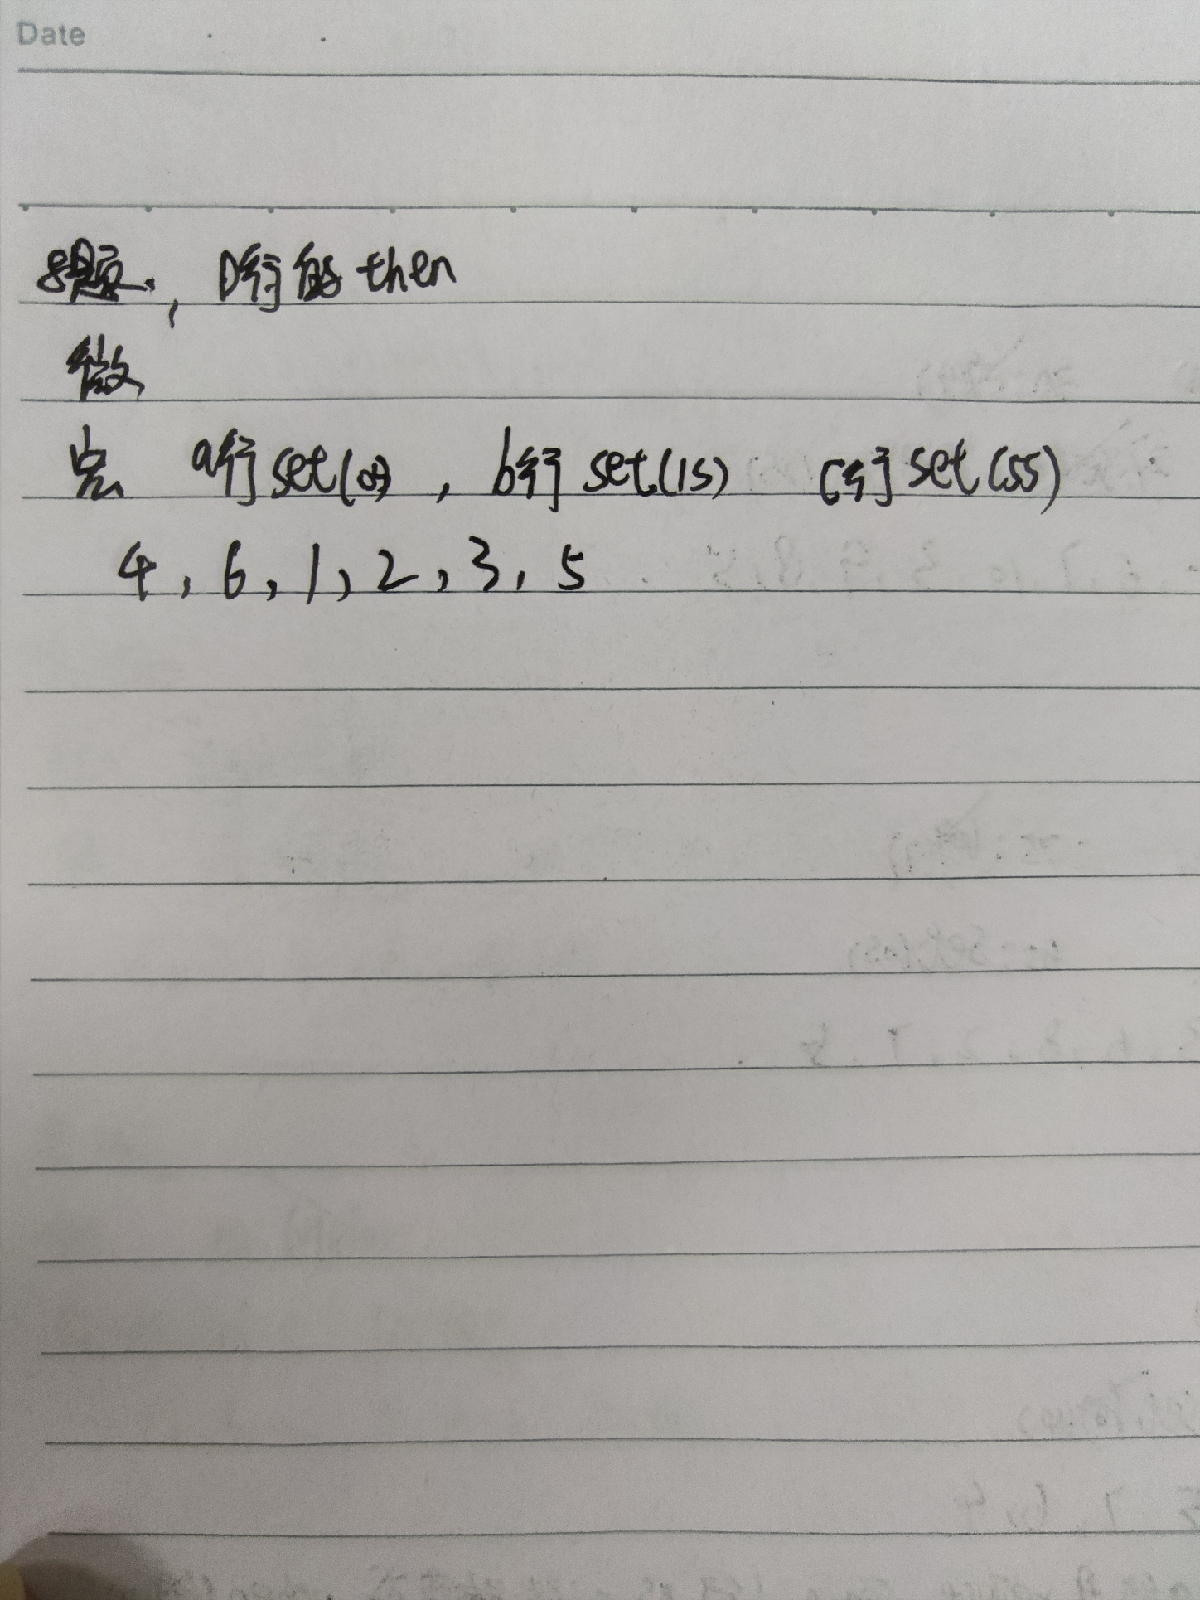 Date
8题, D行的then
微
宏 a行set(0s), b行set(1s) c行set(5s)
4, 6, 1, 2, 3, 5